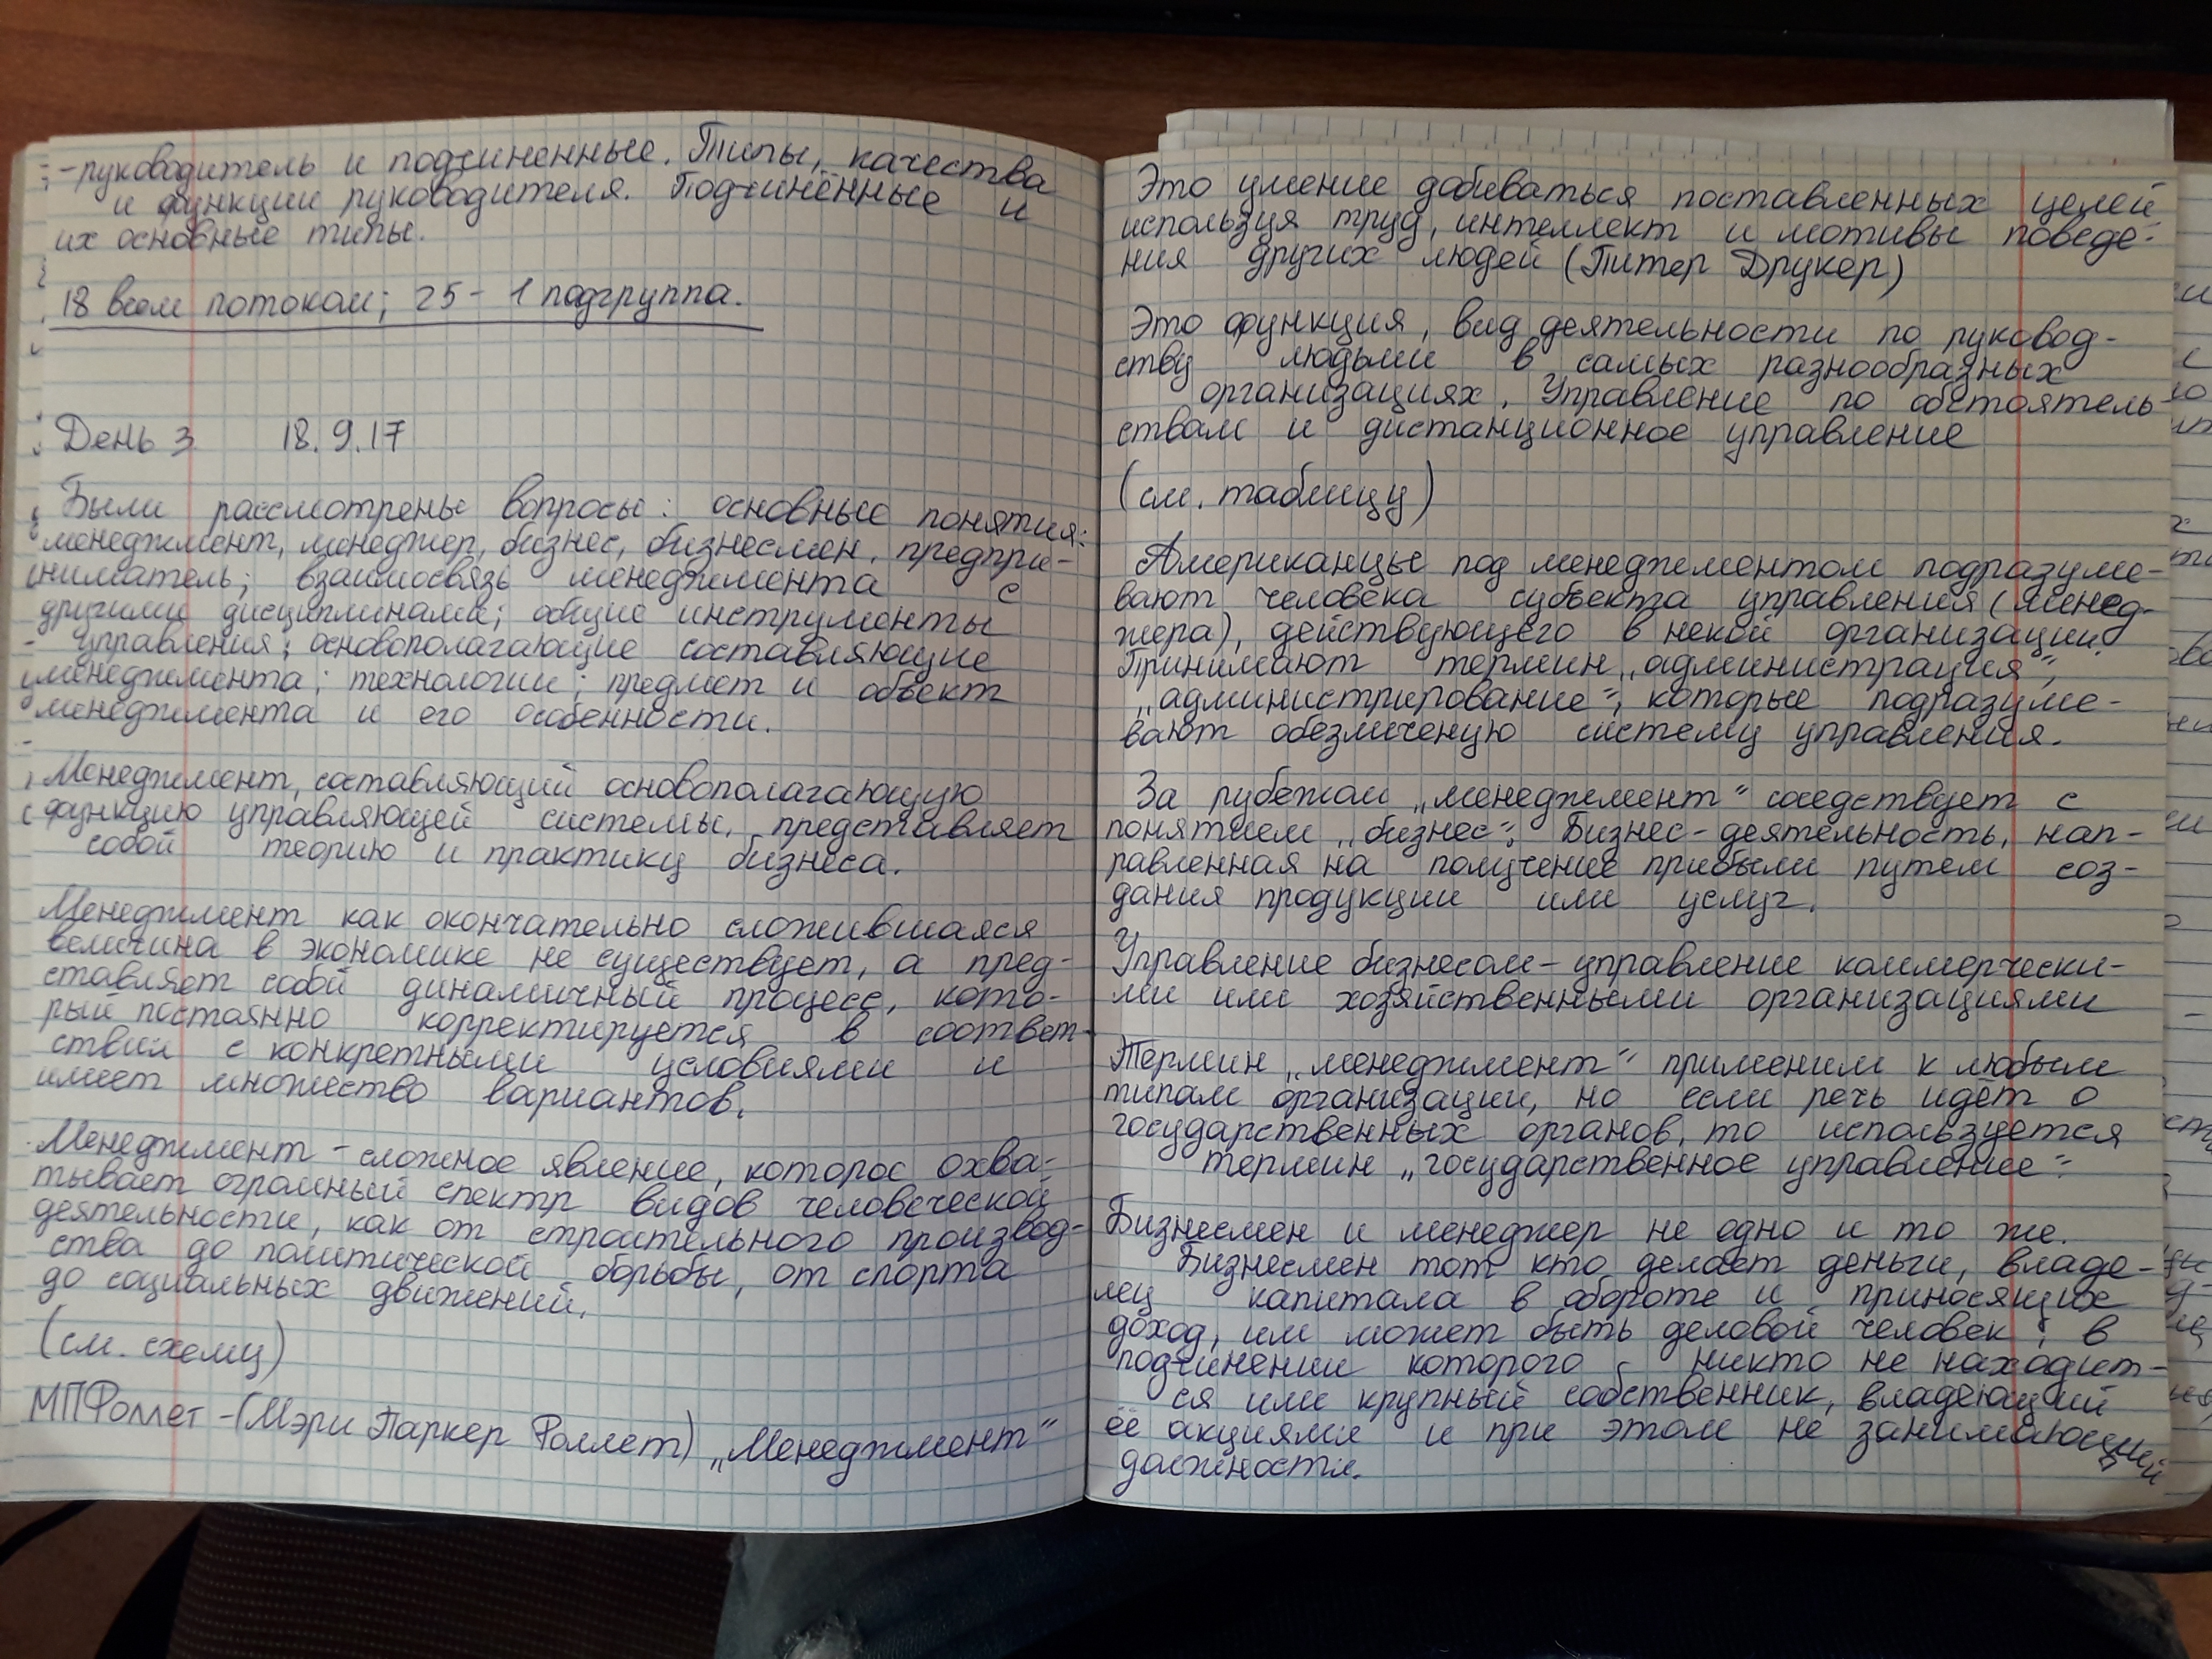 -руководитель и подчиненные. Типы, качества
и функции руководителя. Подчинённые и
их основные типы.
18 всем потоком; 25 - 1 подгруппа.
День 3 18.9.17
Были рассмотрены вопросы: основные понятия:
менеджмент, менеджер, бизнес, бизнесмен, предпри-
ниматель; взаимосвязь менеджмента с
другими дисциплинами; общие инструменты
управления; основополагающие составляющие
менеджмента; технологии; предмет и объект
менеджмента и его особенности.
Менеджмент, составляющий основополагающую
функцию управляющей системы, представляет
собой теорию и практику бизнеса.
Менеджмент как окончательно сложившаяся
величина в экономике не существует, а пред-
ставляет собой динамичный процесс, кото-
рый постоянно корректируется в соответ-
ствии с конкретными условиями и
имеет множество вариантов.
Менеджмент - сложное явление, которое охва-
тывает огромный спектр видов человеческой
деятельности, как от строительного производ-
ства до политической борьбы, от спорта
до социальных движений.
(см. схему)
МПФоллет - (Мэри Паркер Фоллет) „Менеджмент“
Это умение добиваться поставленных целей
используя труд, интеллект и мотивы поведе-
ния других людей (Питер Друкер)
Это функция, вид деятельности по руковод-
ству людьми в самых разнообразных
организациях. Управление по обстоятель
ствам и дистанционное управление
(см. таблицу)
Американцы под менеджментом подразуме-
вают человека субъекта управления (менед-
жера), действующего в некой организации.
Принимают термин „администрация“,
„администрирование“, которые подразуме-
вают обезличеную систему управления.
За рубежом „менеджмент“ соседствует с
понятием „бизнес“. Бизнес - деятельность, нап-
равленная на получение прибыли путем соз-
дания продукции или услуг.
Управление бизнесом - управление коммерчески-
ми или хозяйственными организациями
Термин „менеджмент“ применим к любым
типам организации, но если речь идёт о
государственных органов, то используется
термин „государственное управление“
Бизнесмен и менеджер не одно и то же.
Бизнесмен тот кто делает деньги, владе-
лец капитала в обороте и приносящих
доход, им может быть деловой человек, в
подчинении которого никто не находит-
ся или крупный собственник, владеющий
её акциями и при этом не занимающий
должности.